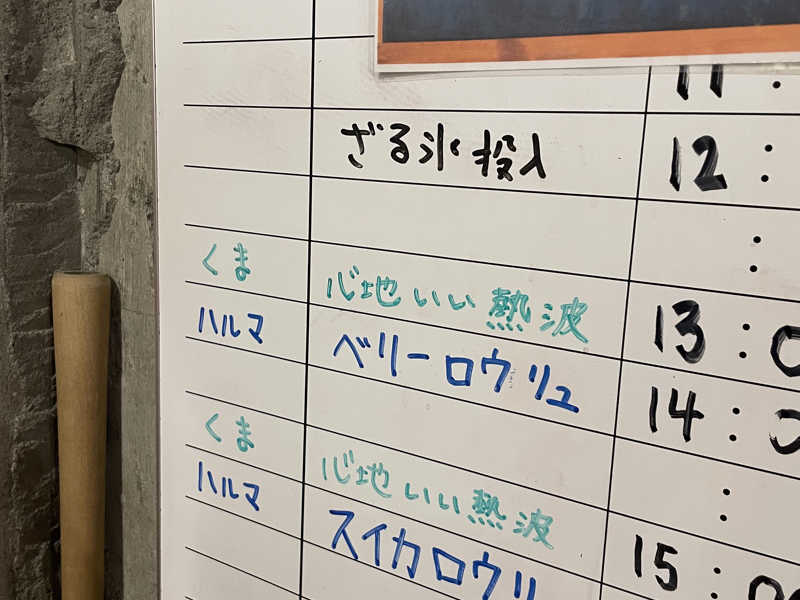 11 :
ざる氷投入 12 :
:
くま 心地いい熱波 13 : 0
ハルマ ベリーロウリュ 14 : 0
:
くま 心地いい熱波
ハルマ スイカロウリ 15 : 00